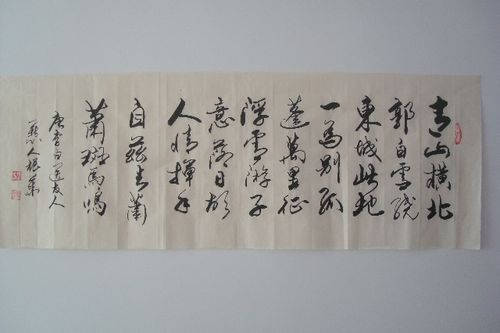 青山橫北
郭白雪绕
東城此地
一為別孤
蓬萬里征
浮雲游子
意落日故
人情揮手
自茲去蕭
蕭斑馬鳴
唐李白送友人